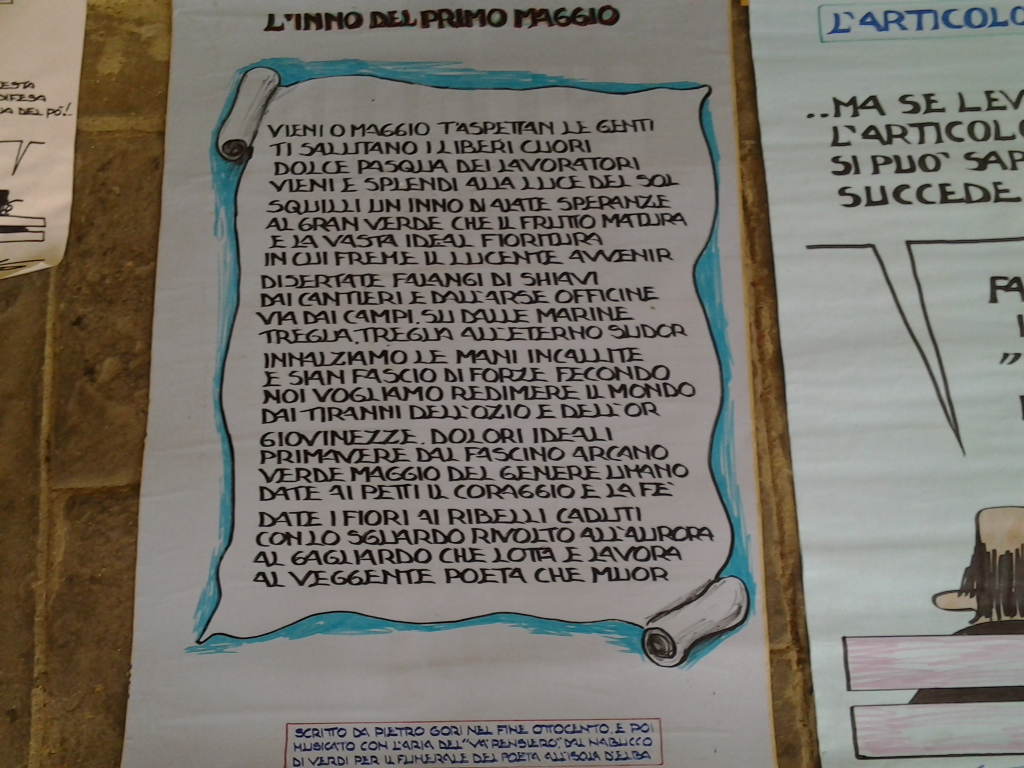 L'INNO DEL PRIMO MAGGIO
VIENI O MAGGIO T'ASPETTAN LE GENTI
TI SALUTANO I LIBERI CUORI
DOLCE PASQUA DEI LAVORATORI
VIENI E SPLENDI ALLA LUCE DEL SOL
SQUILLI UN INNO DI ALATE SPERANZE
AL GRAN VERDE CHE IL FRUTTO MATURA
E LA VASTA IDEAL FIORITURA
IN CUI FREME IL LUCENTE AVVENIR
DISERTATE FALANGI DI SHIAVI
DAI CANTIERI E DALL'ARSE OFFICINE
VIA DAI CAMPI, SU DALLE MARINE
TREGUA, TREGUA ALL'ETERNO SUDOR
INNALZIAMO LE MANI INCALLITE
E SIAN FASCIO DI FORZE FECONDO
NOI VOGLIAMO REDIMERE IL MONDO
DAI TIRANNI DELL'OZIO E DELL'OR
GIOVINEZZE, DOLORI IDEALI
PRIMAVERE DAL FASCINO ARCANO
VERDE MAGGIO DEL GENERE UMANO
DATE AI PETTI IL CORAGGIO E LA FE'
DATE I FIORI AI RIBELLI CADUTI
CON LO SGUARDO RIVOLTO ALL'AURORA
AL GAGLIARDO CHE LOTTA E LAVORA
AL VEGGENTE POETA CHE MUOR
SCRITTO DA PIETRO GORI NEL FINE OTTOCENTO, E POI
MUSICATO CON L'ARIA DEL "VA' PENSIERO", DAL NABUCCO
DI VERDI PER IL FUNERALE DEL POETA ALL'ISOLA D'ELBA
ESTA
DIFESA
DEL PO'!
L'ARTICOLO
..MA SE LEV
L'ARTICOLO
SI PUO' SAP
SUCCEDE
FA